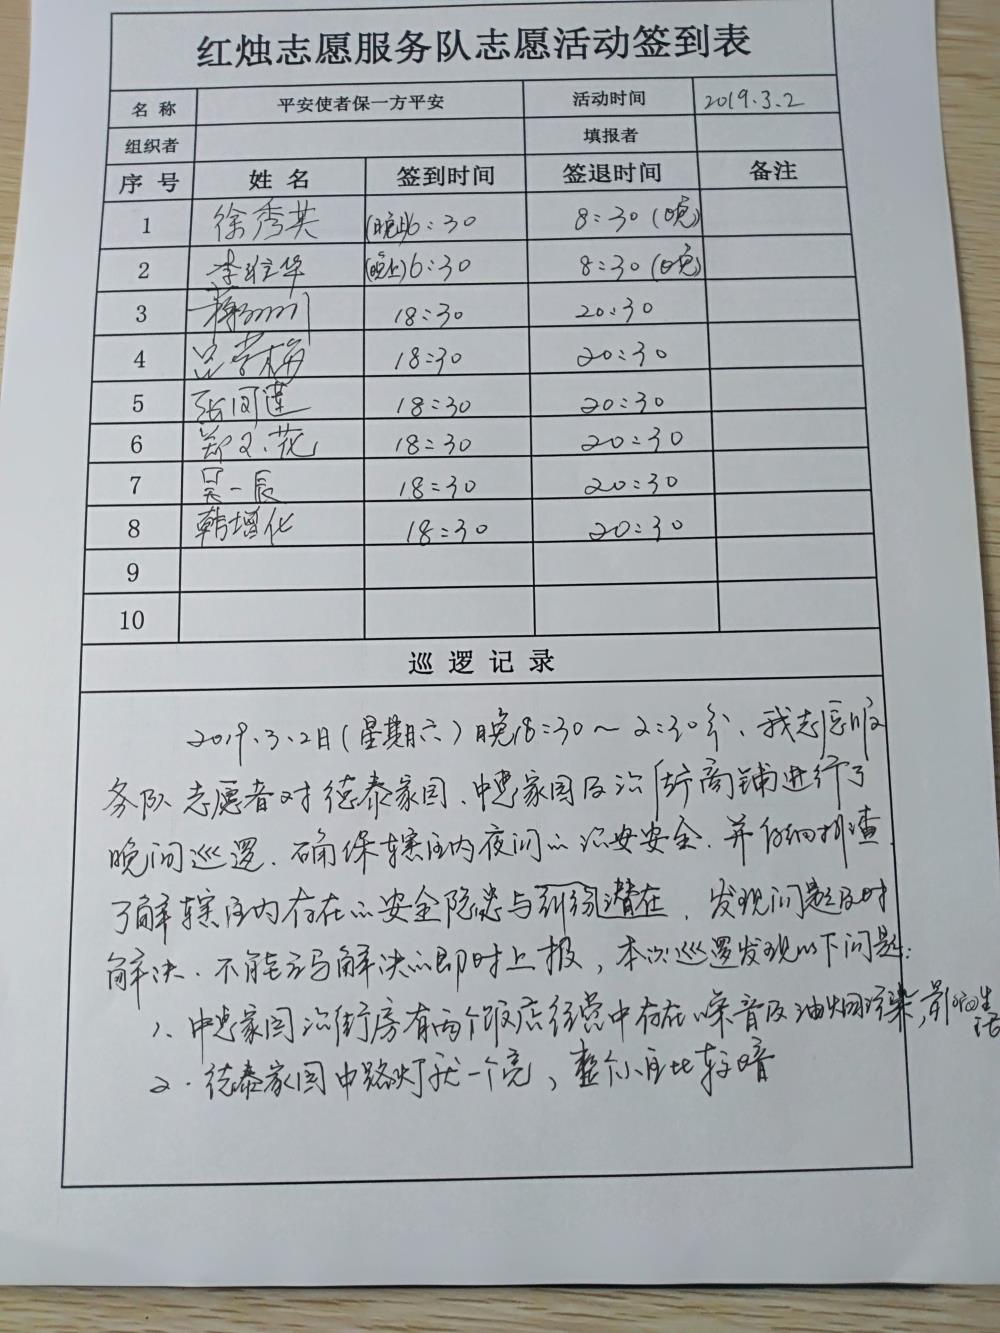 红烛志愿服务队志愿活动签到表
名 称 平安使者保一方平安 活动时间 2019.3.2
组织者 填报者
序 号 姓 名 签到时间 签退时间 备注
1 徐秀英 (晚上)6:30 8:30 (晚)
2 李 华 (晚上)6:30 8:30 (晚)
3 18:30 20:30
4 吕 梅 18:30 20:30
5 张同莲 18:30 20:30
6 郑文花 18:30 20:30
7 吴一辰 18:30 20:30
8 韩增化 18:30 20:30
9
10
巡 逻 记 录
2019.3.2日(星期六)晚18:30~2:30分、我志愿服
务队志愿者对德泰家园、中惠家园及沿街商铺进行了
晚间巡逻.确保辖区内夜间的治安安全.并仔细排查
了解辖区内存在的安全隐患与纠纷潜在,发现问题及时
解决.不能立马解决的即时上报,本次巡逻发现以下问题:
1、中惠家园沿街房有两个饭店经营中存在噪音及油烟污染,影响生活
2.德泰家园中路灯 一个亮,整个小区比较暗